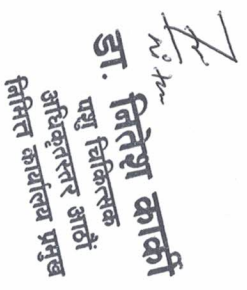 डा. नितेश कार्की
पशु चिकित्सक
अधिकृतस्तर आठौं
निमित्त कार्यालय प्रमुख